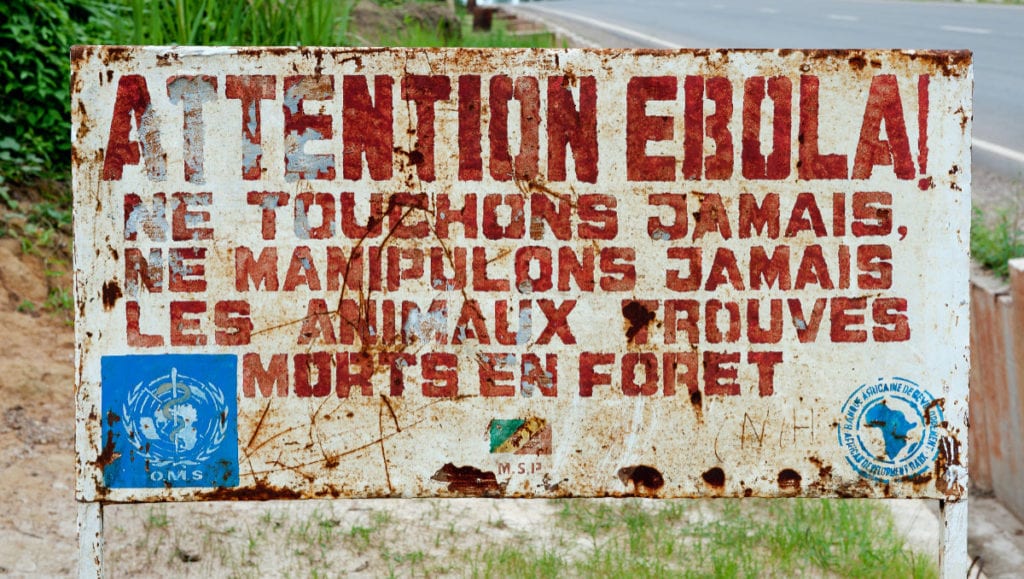 ATTENTION EBOLA!
NE TOUCHONS JAMAIS,
NE MANIPULONS JAMAIS
LES ANIMAUX TROUVES
MORTS EN FORET
O.M.S
M.S.P
NIH
BANQUE AFRICAINE DE DEVELOPPEMENT
AFRICAN DEVELOPMENT BANK